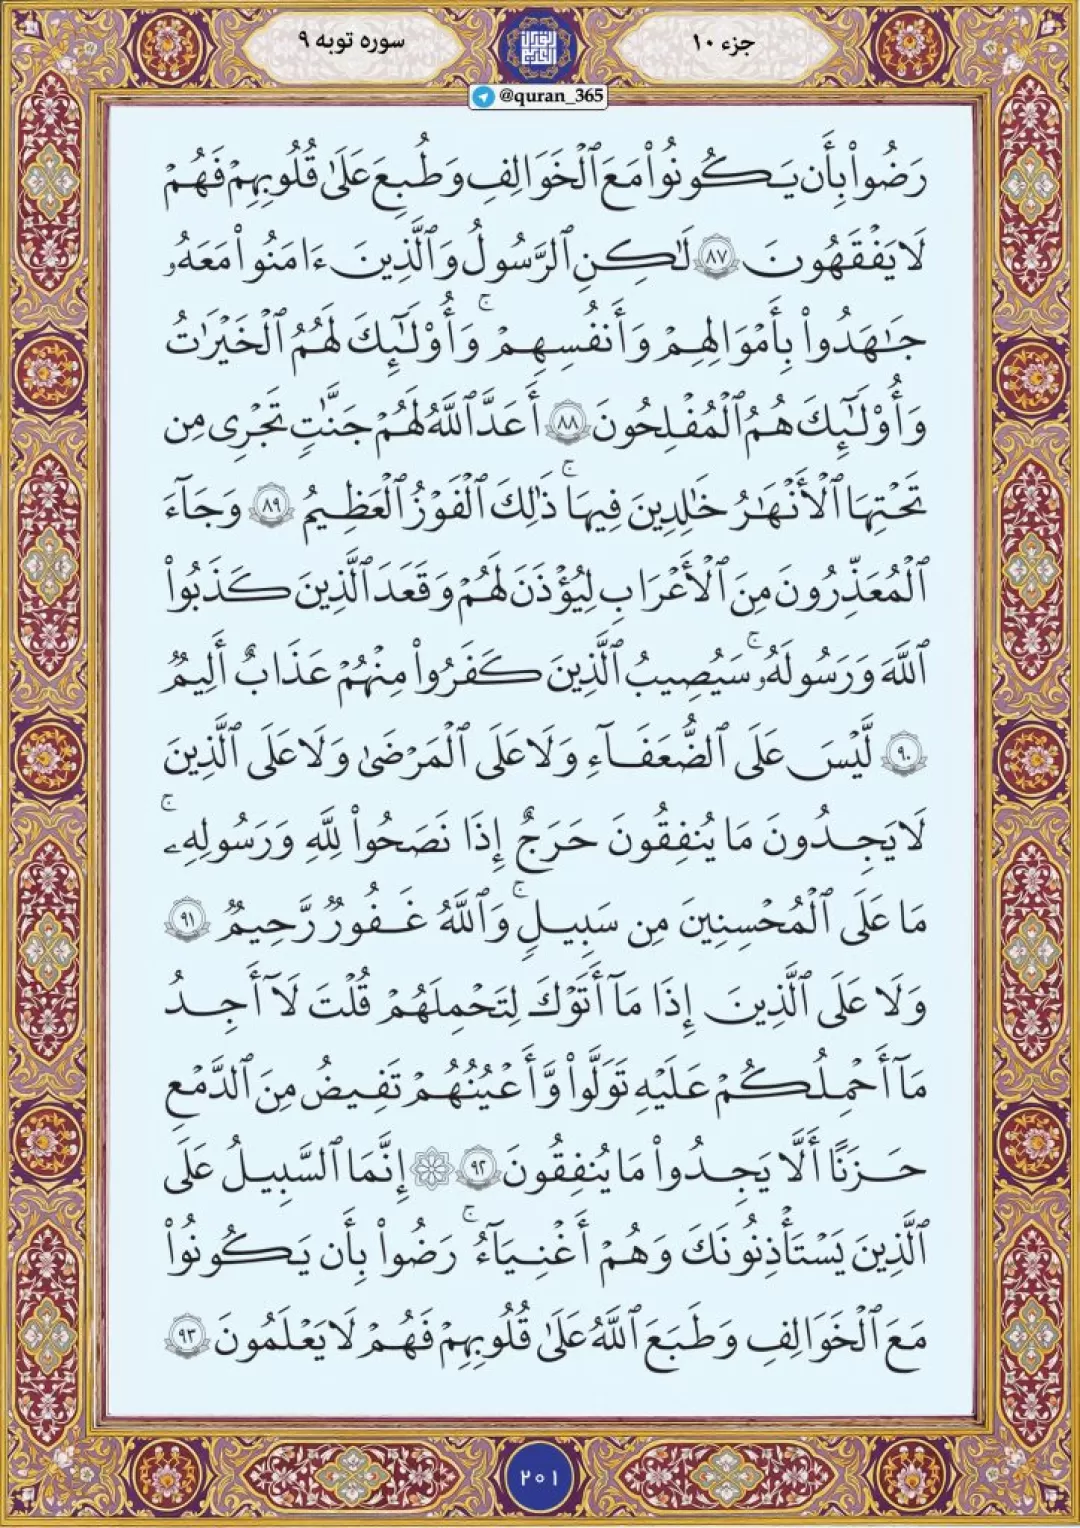 جزء ۱۰
سوره توبه ۹
@quran_365
رَضُوا۟ بِأَن يَكُونُوا۟ مَعَ ٱلْخَوَالِفِ وَطُبِعَ عَلَىٰ قُلُوبِهِمْ فَهُمْ
لَا يَفْقَهُونَ ٨٧ لَـٰكِنِ ٱلرَّسُولُ وَٱلَّذِينَ ءَامَنُوا۟ مَعَهُۥ
جَـٰهَدُوا۟ بِأَمْوَالِهِمْ وَأَنفُسِهِمْ ۚ وَأُو۟لَـٰٓئِكَ لَهُمُ ٱلْخَيْرَٰتُ
وَأُو۟لَـٰٓئِكَ هُمُ ٱلْمُفْلِحُونَ ٨٨ أَعَدَّ ٱللَّهُ لَهُمْ جَنَّـٰتٍ تَجْرِى مِن
تَحْتِهَا ٱلْأَنْهَـٰرُ خَـٰلِدِينَ فِيهَا ۚ ذَٰلِكَ ٱلْفَوْزُ ٱلْعَظِيمُ ٨٩ وَجَآءَ
ٱلْمُعَذِّرُونَ مِنَ ٱلْأَعْرَابِ لِيُؤْذَنَ لَهُمْ وَقَعَدَ ٱلَّذِينَ كَذَبُوا۟
ٱللَّهَ وَرَسُولَهُۥ ۚ سَيُصِيبُ ٱلَّذِينَ كَفَرُوا۟ مِنْهُمْ عَذَابٌ أَلِيمٌ
٩٠ لَّيْسَ عَلَى ٱلضُّعَفَآءِ وَلَا عَلَى ٱلْمَرْضَىٰ وَلَا عَلَى ٱلَّذِينَ
لَا يَجِدُونَ مَا يُنفِقُونَ حَرَجٌ إِذَا نَصَحُوا۟ لِلَّهِ وَرَسُولِهِۦ ۚ
مَا عَلَى ٱلْمُحْسِنِينَ مِن سَبِيلٍ ۚ وَٱللَّهُ غَفُورٌ رَّحِيمٌ ٩١
وَلَا عَلَى ٱلَّذِينَ إِذَا مَآ أَتَوْكَ لِتَحْمِلَهُمْ قُلْتَ لَآ أَجِدُ
مَآ أَحْمِلُكُمْ عَلَيْهِ تَوَلَّوا۟ وَّأَعْيُنُهُمْ تَفِيضُ مِنَ ٱلدَّمْعِ
حَزَنًا أَلَّا يَجِدُوا۟ مَا يُنفِقُونَ ٩٢ ۞ إِنَّمَا ٱلسَّبِيلُ عَلَى
ٱلَّذِينَ يَسْتَأْذِنُونَكَ وَهُمْ أَغْنِيَآءُ ۚ رَضُوا۟ بِأَن يَكُونُوا۟
مَعَ ٱلْخَوَالِفِ وَطَبَعَ ٱللَّهُ عَلَىٰ قُلُوبِهِمْ فَهُمْ لَا يَعْلَمُونَ ٩٣
۲۰۱